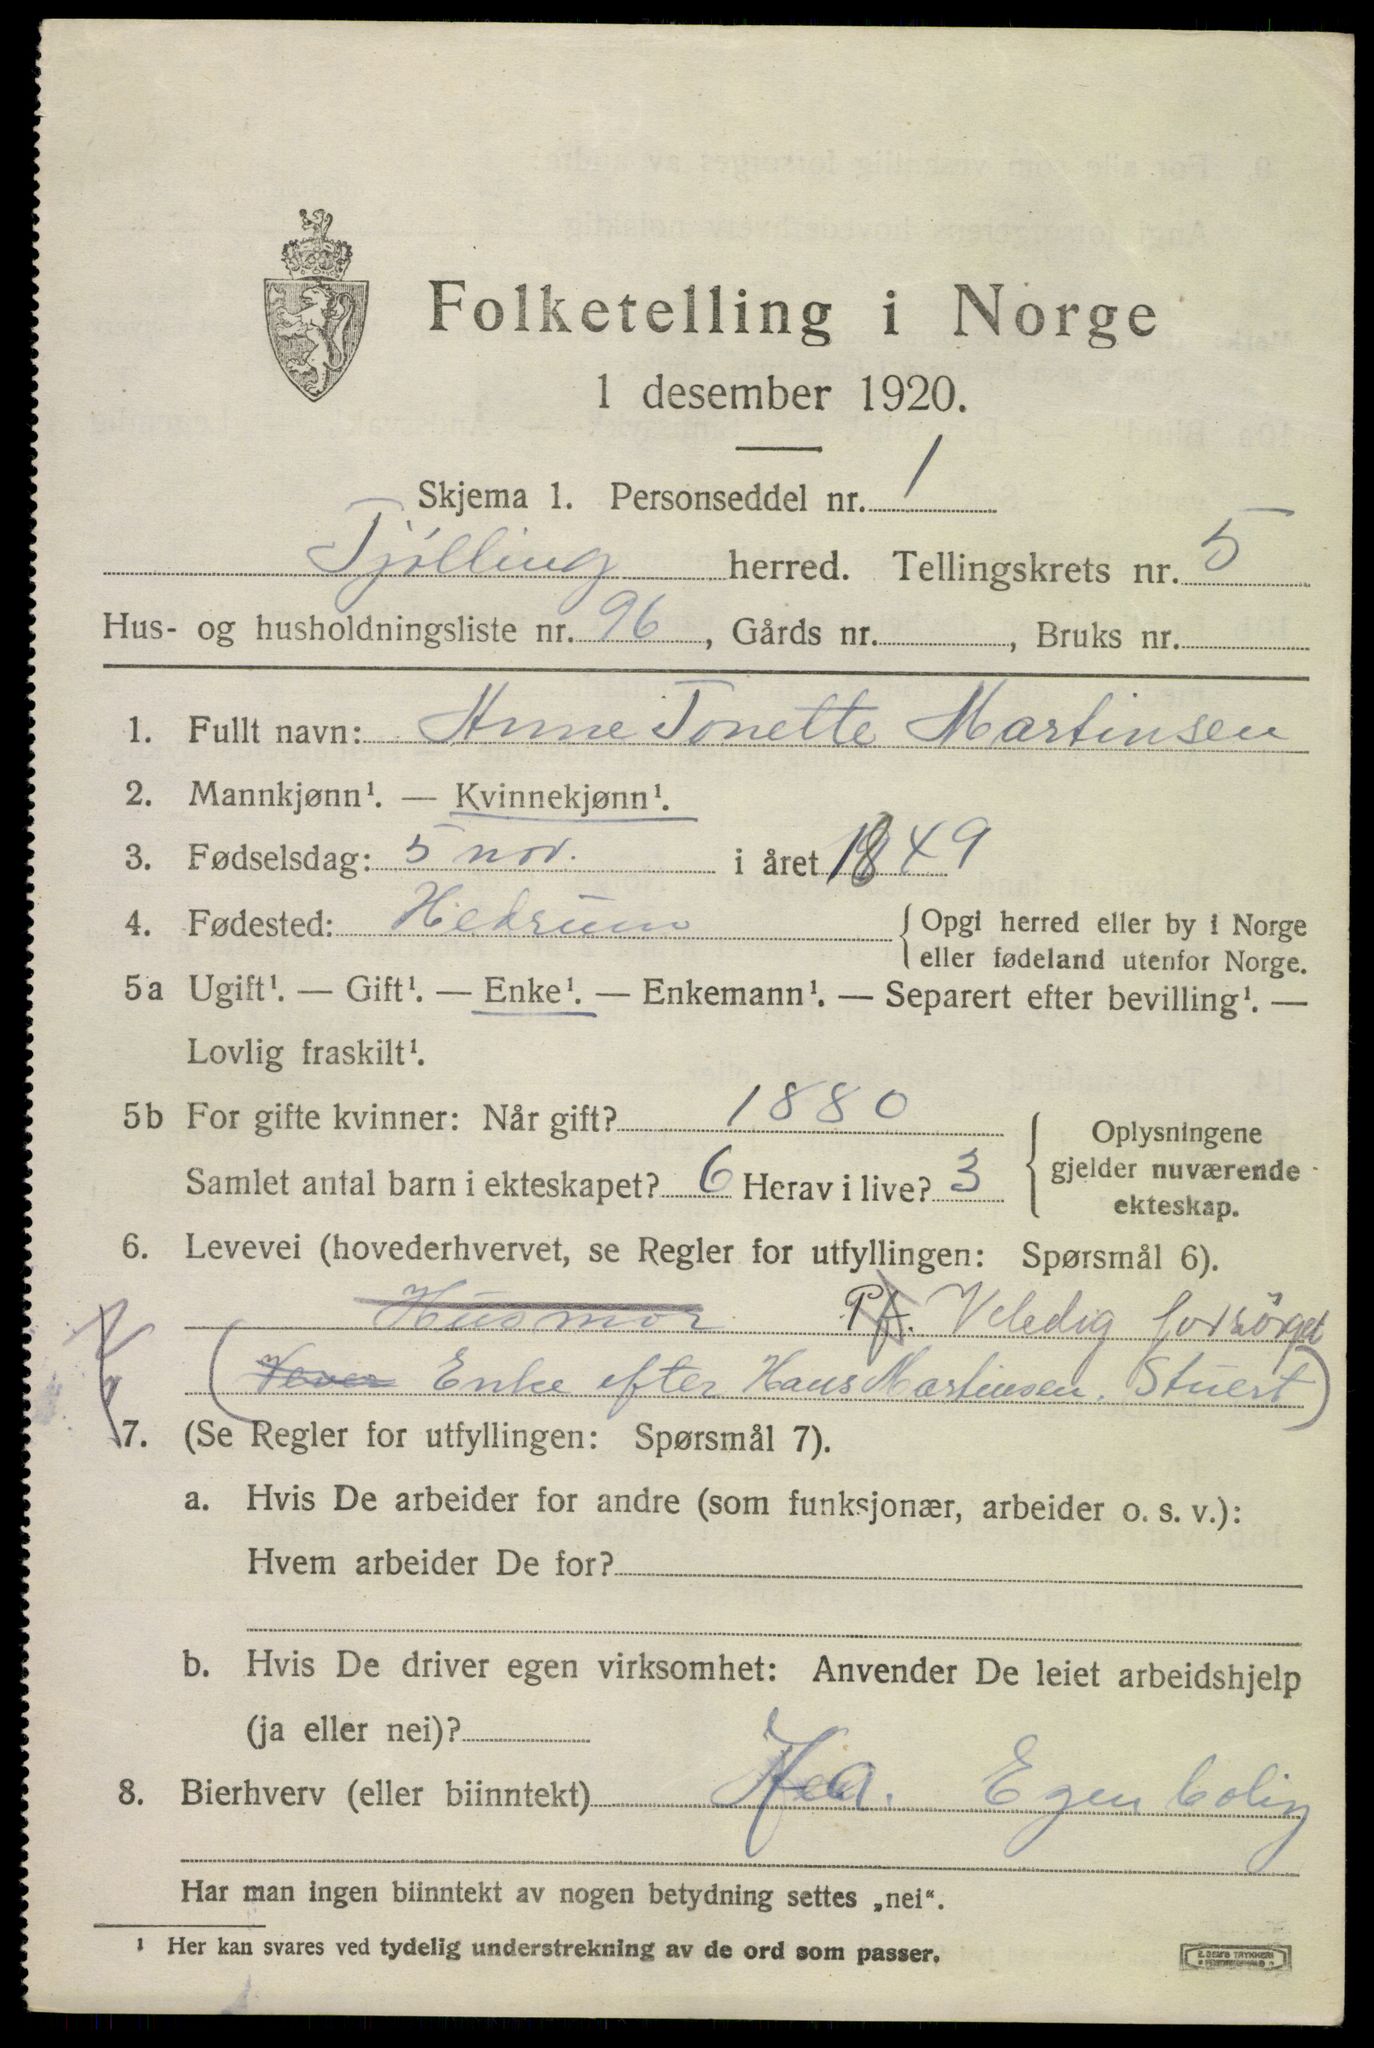 Folketelling i Norge
1 desember 1920.
Skjema 1. Personseddel nr. 1
Tjölling herred. Tellingskrets nr. 5
Hus- og husholdningsliste nr. 96, Gårds nr. , Bruks nr.
1. Fullt navn: Anne Tonette Martinsen
2. Mannkjønn¹. — Kvinnekjønn¹.
3. Fødselsdag: 5 nov. i året 1849
4. Fødested: Hedrum { Opgi herred eller by i Norge
eller fødeland utenfor Norge.
5a Ugift¹. — Gift¹. — Enke¹. — Enkemann¹. — Separert efter bevilling¹. —
Lovlig fraskilt¹.
5b For gifte kvinner: Når gift? 1880
Samlet antal barn i ekteskapet? 6 Herav i live? 3
{ Oplysningene
gjelder nuværende
ekteskap.
6. Levevei (hovederhvervet, se Regler for utfyllingen: Spørsmål 6).
Husmor Veledig forsörget
( Enke efter Hans Martinsen. Stuert)
7. (Se Regler for utfyllingen: Spørsmål 7).
a. Hvis De arbeider for andre (som funksjonær, arbeider o. s. v.):
Hvem arbeider De for?
b. Hvis De driver egen virksomhet: Anvender De leiet arbeidshjelp
(ja eller nei)?
8. Bierhverv (eller biinntekt) Egen bolig
Har man ingen biinntekt av nogen betydning settes „nei“.
¹ Her kan svares ved tydelig understrekning av de ord som passer.